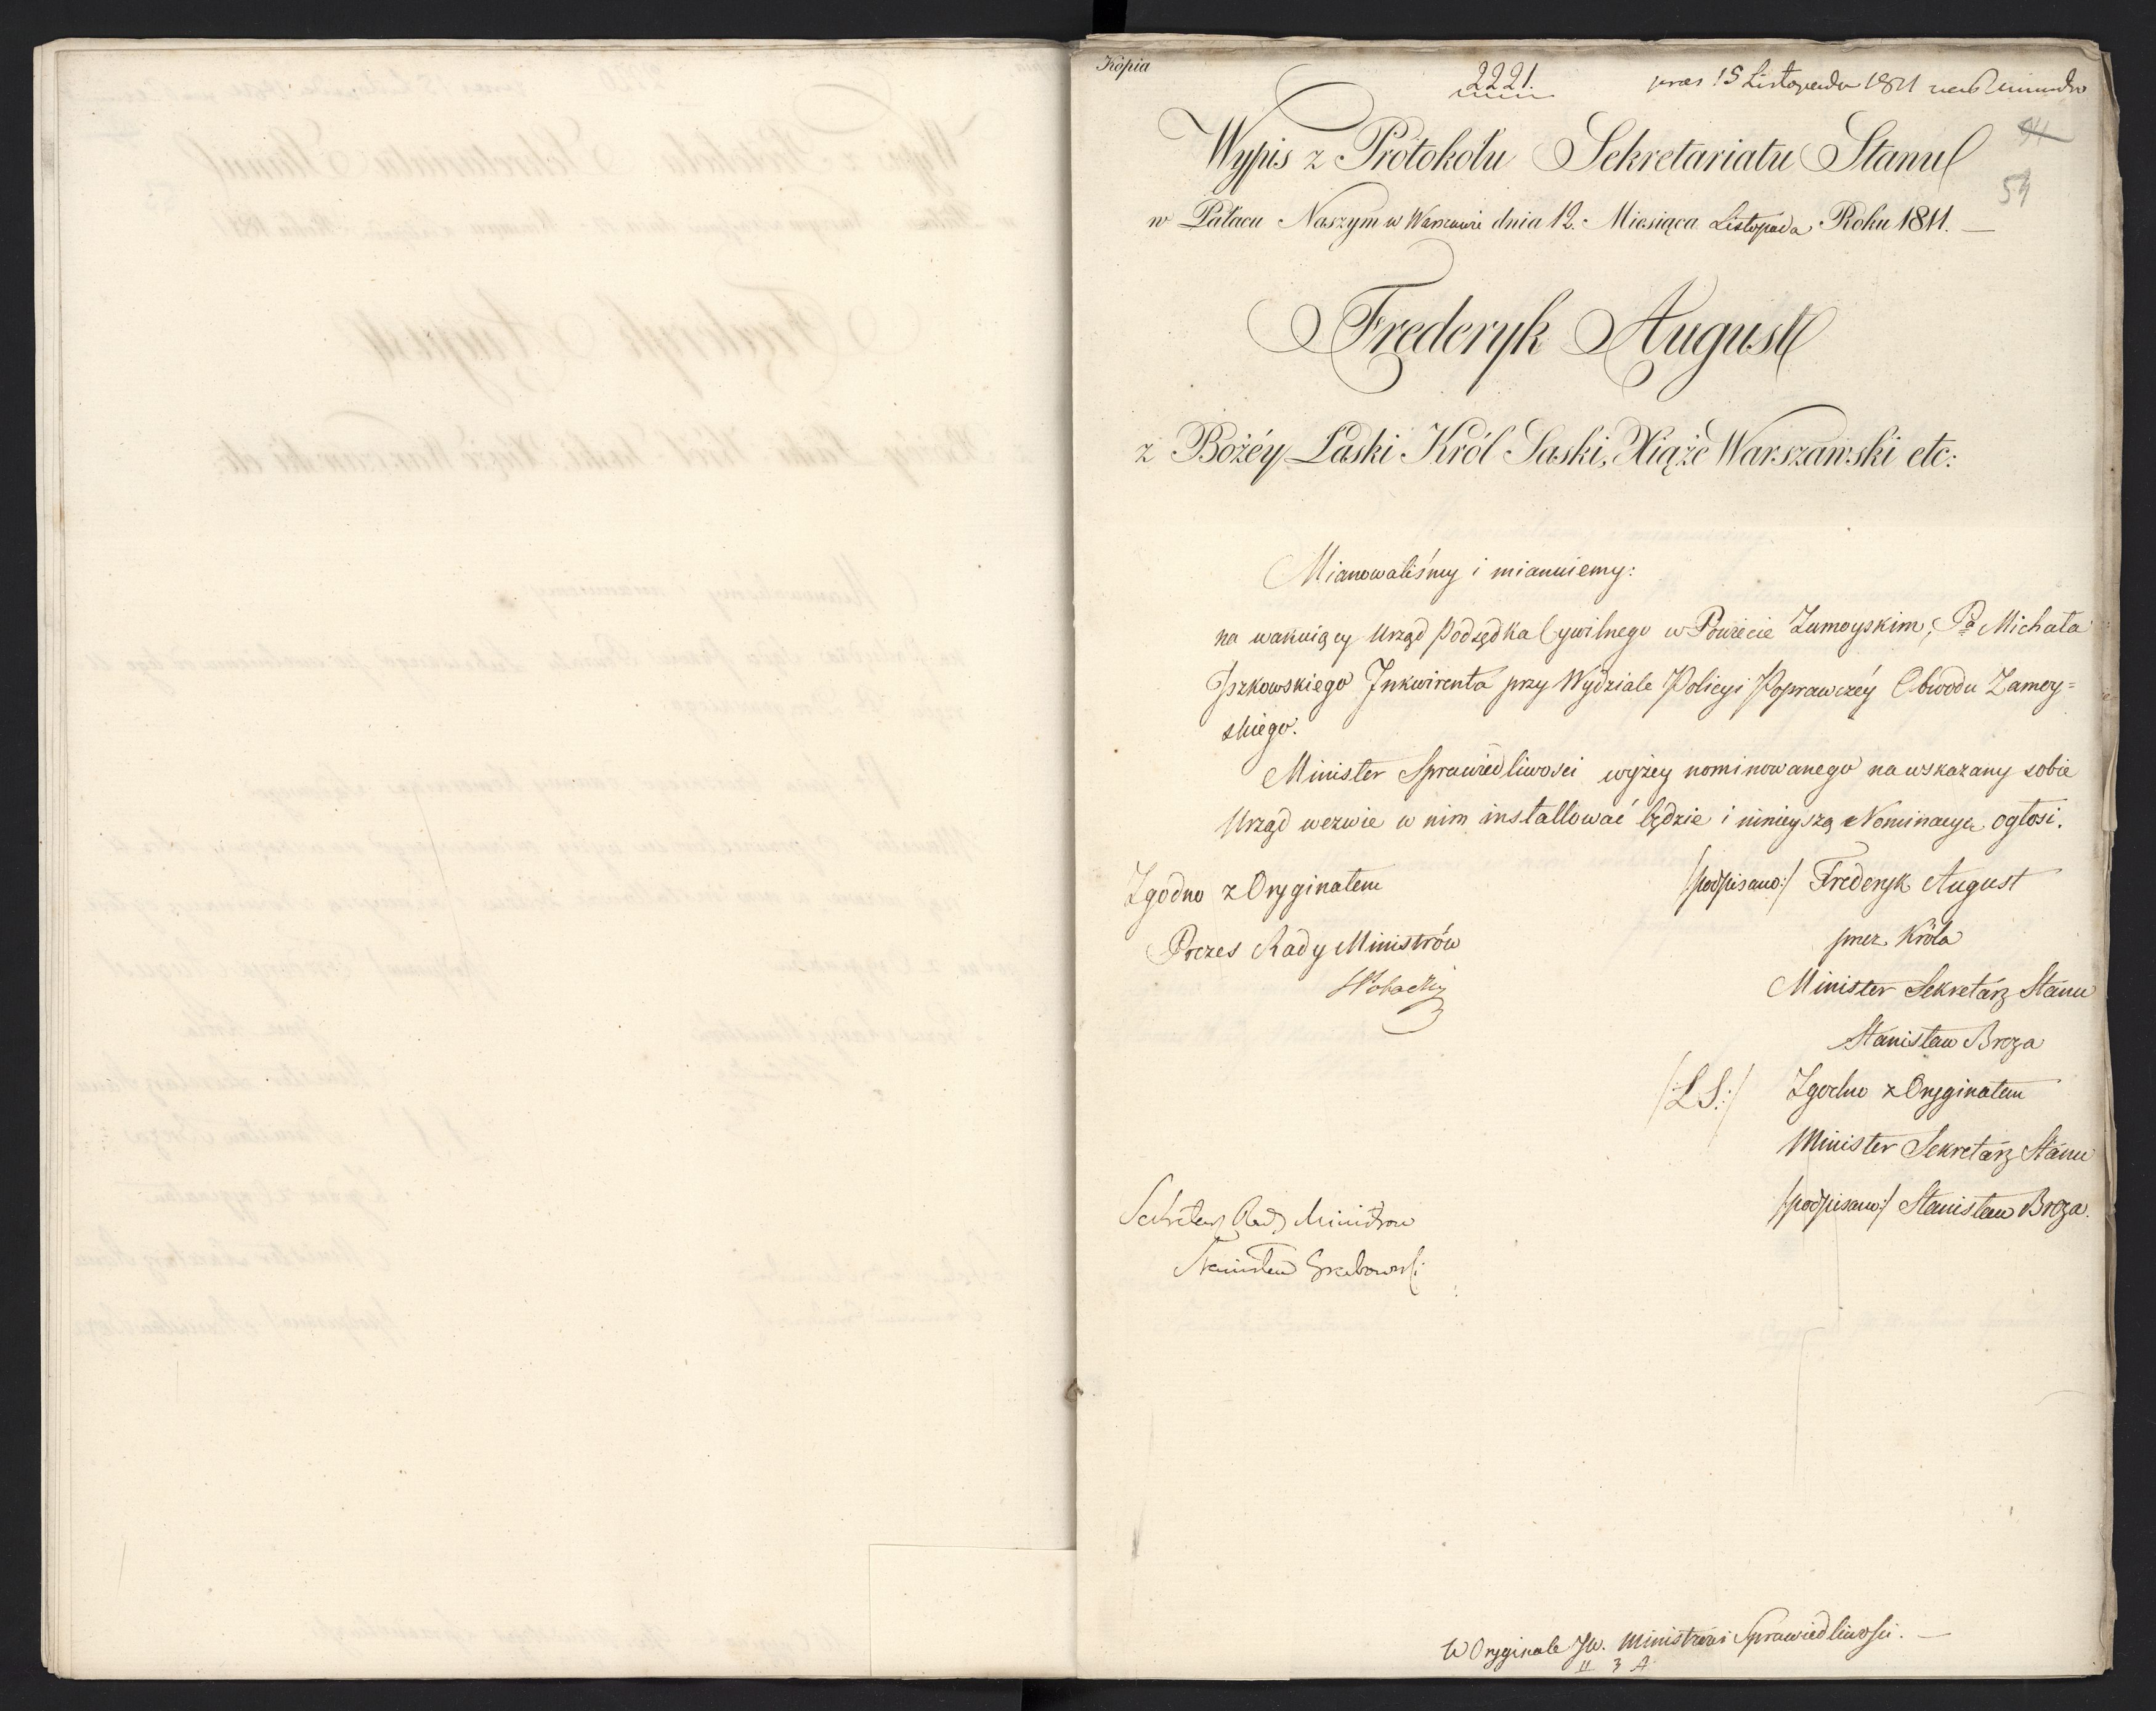 Kopia
2221.
praes 15 Listopada 1811
54
Wypis z Protokołu Sekretariatu Stanu
w Pałacu Naszym w Warszawie dnia 12. Miesiąca Listopada Roku 1811. —
Frederyk August
z Bożéy Łaski Król Saski, Xiąże Warszawski etc:
Mianowaliśmy i mianuiemy:
na wakuiący Urząd Podsędka Cywilnego w Powiecie Zamoyskim, Pa Michała
Jszkowskiego Inkwirenta przy Wydziale Policyi Poprawczéy Obwodu Zamoy=
skiego.
Minister Sprawiedliwosci wyżey nominowanego na wskazany sobie
Urząd wezwie w nim installować będzie i ninieyszą Nominacyą ogłosi.
Zgodno z Oryginałem
/podpisano:/ Frederyk August
Prezes Rady Ministrów
przez Króla
Minister Sekretarz Stanu
Stanisław Breza
/:L.S.:/ Zgodno z Oryginałem
Minister Sekretarz Stanu
/podpisano:/ Stanisław Breza.
Sekretarz Rady Ministrow
Stanisław Grabowski
W Oryginale JW. Ministrowi Sprawiedliwości. —